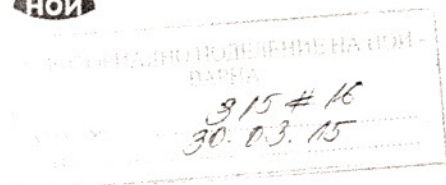 НОИ
ТЕРИТОРИАЛНО ПОДЕЛЕНИЕ НА НОИ -
ВАРНА
315 # 16
30.03.15